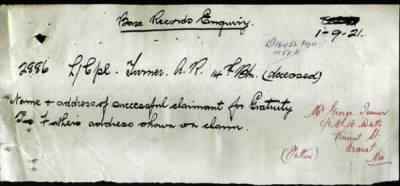 Base Records Enquiry.
1-9-21.
2886 L/Cpl. Turner. A. R. 14th Bn. (deceased)
Name & address of successful claimant for Gratuity
Father's address shown on claim.
Mr George Turner
Vincent St
Ararat
Vic
(Father)